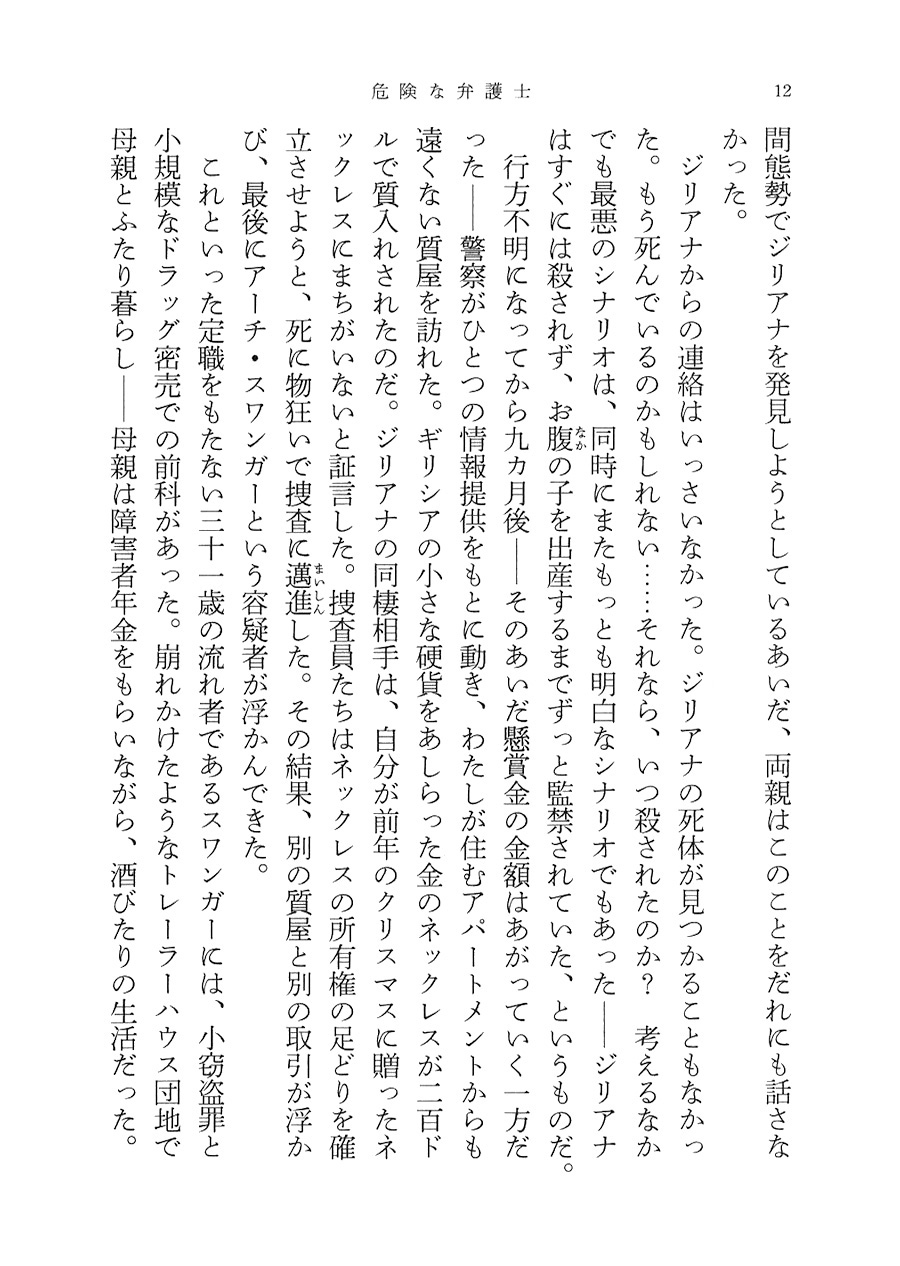 危険な弁護士
12
間態勢でジリアナを発見しようとしているあいだ、両親はこのことをだれにも話さな
かった。
ジリアナからの連絡はいっさいなかった。ジリアナの死体が見つかることもなかっ
た。もう死んでいるのかもしれない……それなら、いつ殺されたのか？　考えるなか
でも最悪のシナリオは、同時にまたもっとも明白なシナリオでもあった――ジリアナ
はすぐには殺されず、お腹の子を出産するまでずっと監禁されていた、というものだ。
なか
行方不明になってから九カ月後――そのあいだ懸賞金の金額はあがっていく一方だ
った――警察がひとつの情報提供をもとに動き、わたしが住むアパートメントからも
遠くない質屋を訪れた。ギリシアの小さな硬貨をあしらった金のネックレスが二百ド
ルで質入れされたのだ。ジリアナの同棲相手は、自分が前年のクリスマスに贈ったネ
ックレスにまちがいないと証言した。捜査員たちはネックレスの所有権の足どりを確
立させようと、死に物狂いで捜査に邁進した。その結果、別の質屋と別の取引が浮か
まいしん
び、最後にアーチ・スワンガーという容疑者が浮かんできた。
これといった定職をもたない三十一歳の流れ者であるスワンガーには、小窃盗罪と
小規模なドラッグ密売での前科があった。崩れかけたようなトレーラーハウス団地で
母親とふたり暮らし――母親は障害者年金をもらいながら、酒びたりの生活だった。